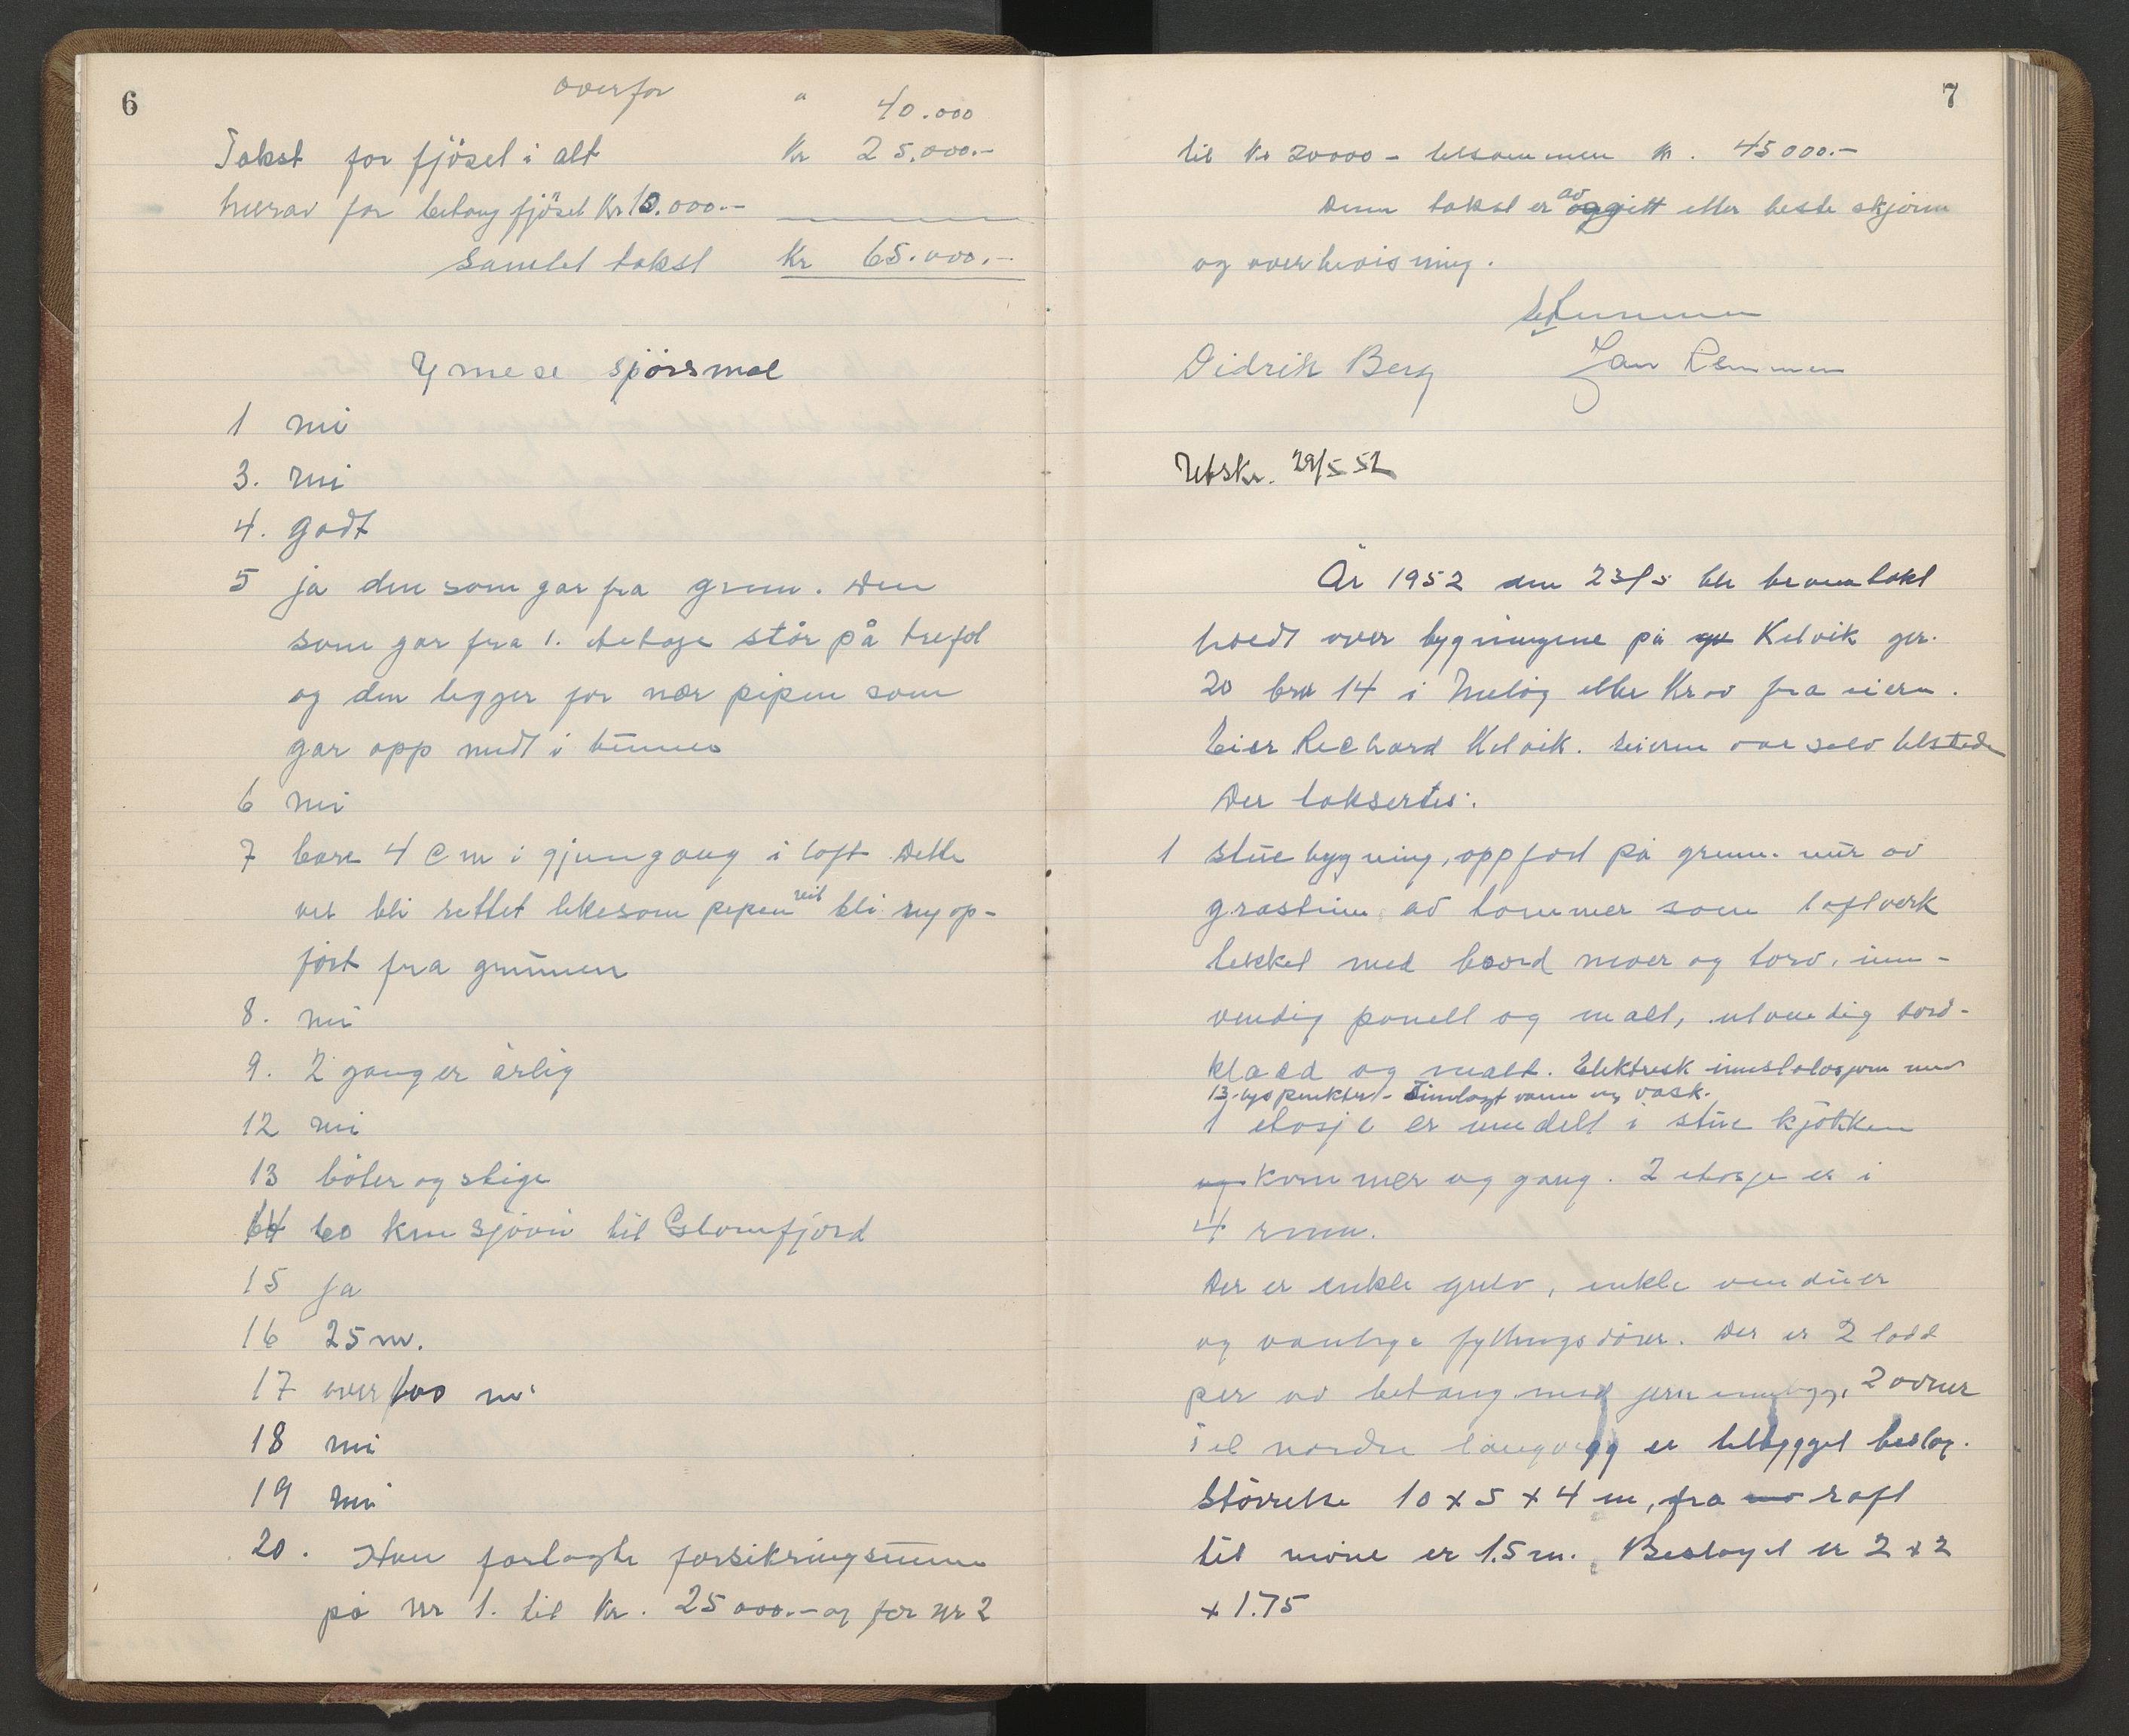 6
overfor " 40.000
Takst for fjöset i alt Kr 25.000.-
herav for betong fjöset Kr 10.000.-
Samlet takst Kr 65.000.-
Ymese spörsmal
1 nei
3. nei
4. godt
5 ja den som gar fra grun. Den
som gar fra 1. etetasje står på trefot
og den ligger for nær pipen som
gar opp midt i
6 nei
7 bare 4 cm i gjengang i loft Dette
vil bli rettet likesom pipen vil bli ny op-
fört fra grunnen
8. nei
9. 2 ganger årlig
12 nei
13 böter og stige
14 60 km sjövei til Glomfjord
15 Ja
16 25 m.
17 over 100 m
18 nei
19 nei
20. Hvu forlagte forsikringsumme
på Nr 1. til Kr. 25000.- og for Nr 2
7
til Kr 20000 - tilsammen Kr. 45000.-
Denn takst er av oggitt etter beste skjønn
og overbevisning.
Didrik Berg Jan
Utskr. 29/5 52
År 1952 den 23/5 ble branntakst
holdt over bygningene på Kilvik gr.
20 bru 14 i Melöy etter Krav fra eieren.
Eier Richard Kilvik. Eieren var selv tilstede
Der taksertes:
1 stuebygning, oppfört på grunn. mur av
grastein av tommer som laftverk
tekket med boord never og torv, inn-
vendig panelt og malt, utvendig bord-
kledd og malt. Elektrisk innstalasjon med
13 lys punkter - Innlagt vann og vask.
1 etasje er inndelt i stue kjökken
og kammer og gang. 2 etasje er i
4 rum.
Der er enkle gulv, enkle vinduer
og vanlige fyllingsdörer. Der er 2 ladd
per av betong med jern innlegg, 2 ovner
i et nordre langvegg er tilbygget beslag.
Störrelse 10 x 5 x 4 m, fra raft
til möne er 1.5 m. Beslaget er 2 x 2
x 1.75